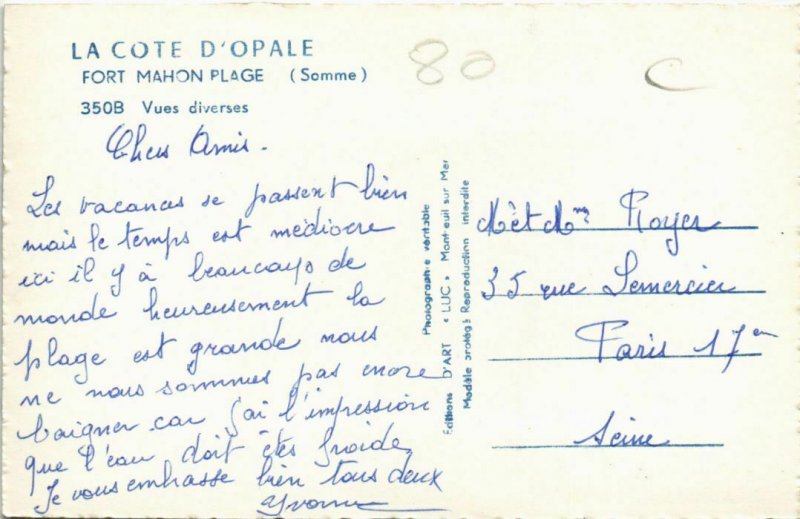 LA COTE D'OPALE
FORT MAHON PLAGE (Somme)
350B Vues diverses
80
C
Chers Amis.
Les vacances se passent bien
mais le temps est médiocre
ici il y à beaucoups de
monde heureusement la
plage est grande nous
ne nous sommes pas encore
baigner car j'ai l'impression
que l'eau doit êtes froide,
Je vous embrasse bien tous deux
Yvonne
Photographie véritable
Editions D'ART « LUC » Montreuil sur Mer
Modèle protégé Reproduction interdite
M et Mme Royer
35 rue Lemercier
Paris 17em
Seine